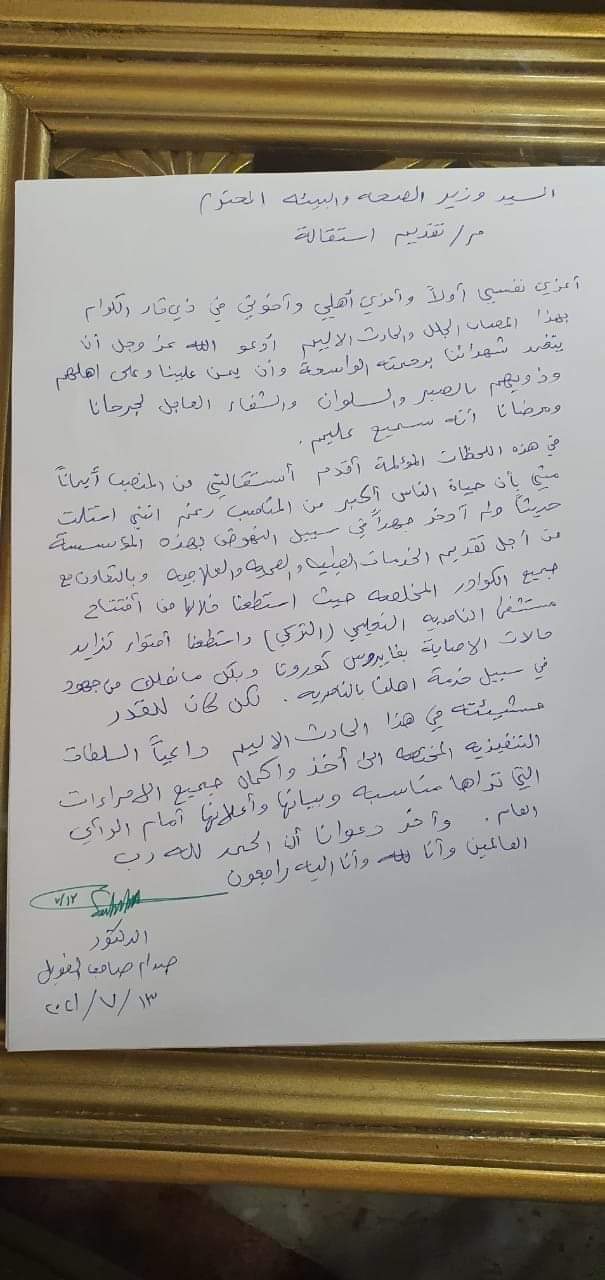 السيد وزير الصحه والبيئه المحترم
م/ تقديم استقالة
أعزي نفسي أولاً وأعزي أهلي وأخوتي في ذي قار الكرام
بهذا المصاب الجلل والحادث الاليم أدعو الله عز وجل أن
يتغمد شهدائنا برحمته الواسعة وأن يمن علينا وعلى اهلهم
وذويهم بالصبر والسلوان والشفاء العاجل لجرحانا
ومرضانا أنه سميع عليم.
في هذه اللحظات المؤلمة أقدم أستقالتي من المنصب أيماناً
مني بأن حياة الناس أكبر من المناصب رغم انني استلمت
حديثاً ولم أدخر جهداً في سبيل النهوض بهذه المؤسسة
من أجل تقديم الخدمات الطبيه والصحيه والعلاجيه وبالتعاون مع
جميع الكوادر المخلصه حيث استطعنا خلالها من أفتتاح
مستشفى الناصريه التعليمي (التركي) واستطعنا أحتواء تزايد
حالات الاصابة بفايروس كورونا وبكل مانملك من جهود
في سبيل خدمة اهلنا بالناصريه. لكن كان للقدر
مشيئته في هذا الحادث الاليم داعياً السلطات
التنفيذيه المختصه الى أخذ واكمال جميع الاجراءات
التي تراها مناسبه وبيانها وأعلانها أمام الرأي
العام. وأخر دعوانا أن الحمد لله رب
العالمين وأنا لله وأنا اليه راجعون
٧/١٣
الدكتور
صدام صاحب الطويل
٢٠٢١/٧/١٣